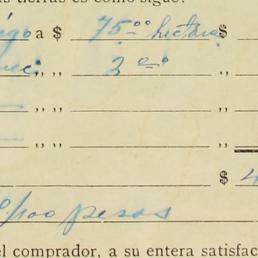 as tierras es como sigue:
a $ 75.00 hectárea $
,, ,, 2 00 ,,
,, ,, ,,
,, ,, ,,
$ 4
/100 pesos
el comprador, a su entera satisfac